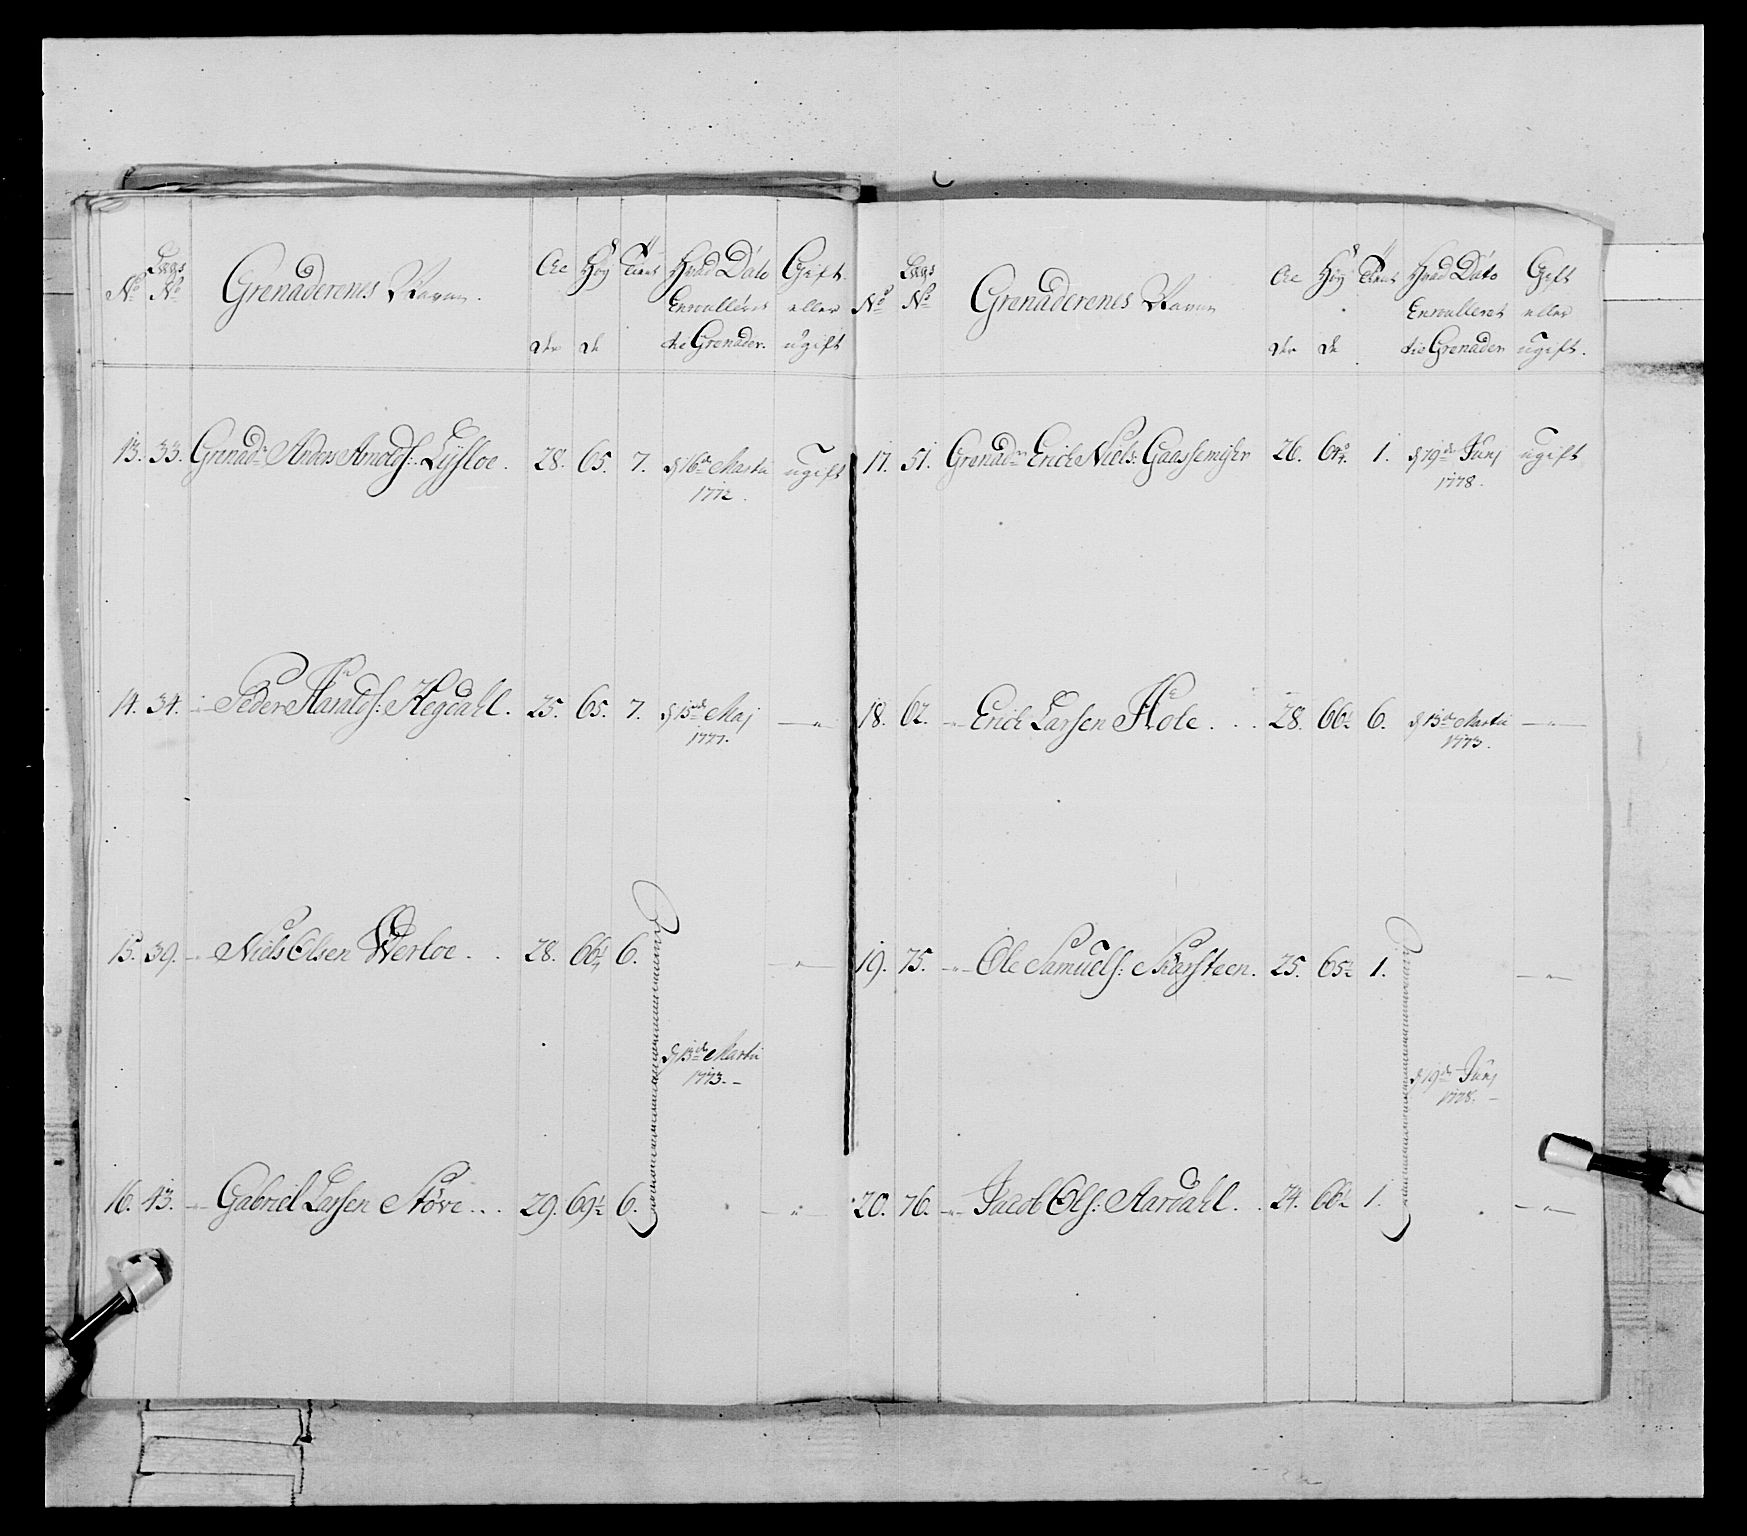 No Lægs No Grenaderenes Navne. Alder Høyde Tient Hvad Dato Enroulleret die Grenader. Gift eller ugift
13. 33. Grenadr Anders Arnolds: 28. 65. 7. d 16de Martii 1772. ugift
14. 34. -"- Peder Haralds: Hegdahl. 25. 65. 7. d 15de Maj 1777. -"-
15. 39. -"- Niels Olsen Werloe. . 28. 66¼ 6. -"-
d 13de Martii 1773. -
16. 43. -"- Gabriel Larsen Støve... 29. 69½ 6. -"-
No Lægs No Grenaderenes Navne Alder Høyde Tient Hvad Dato Enroulleret die Grenader Gift eller ugift.
17. 51. Grenadr Erich Niels: 26. 64¾. 1. d 19de Junj 1778. ugift
18. 62. -"- Erich Larsen Hole. . . 28. 66½ 6. d 13de Martii 1773. -"-
19. 75. -"- Ole Samuels: Skarsteen. 25. 65½ 1. -"-
d 19de Junj 1778. -
20. 76. -"- Jacob Ols: Aardahl. . 24. 66½ 1. -"-